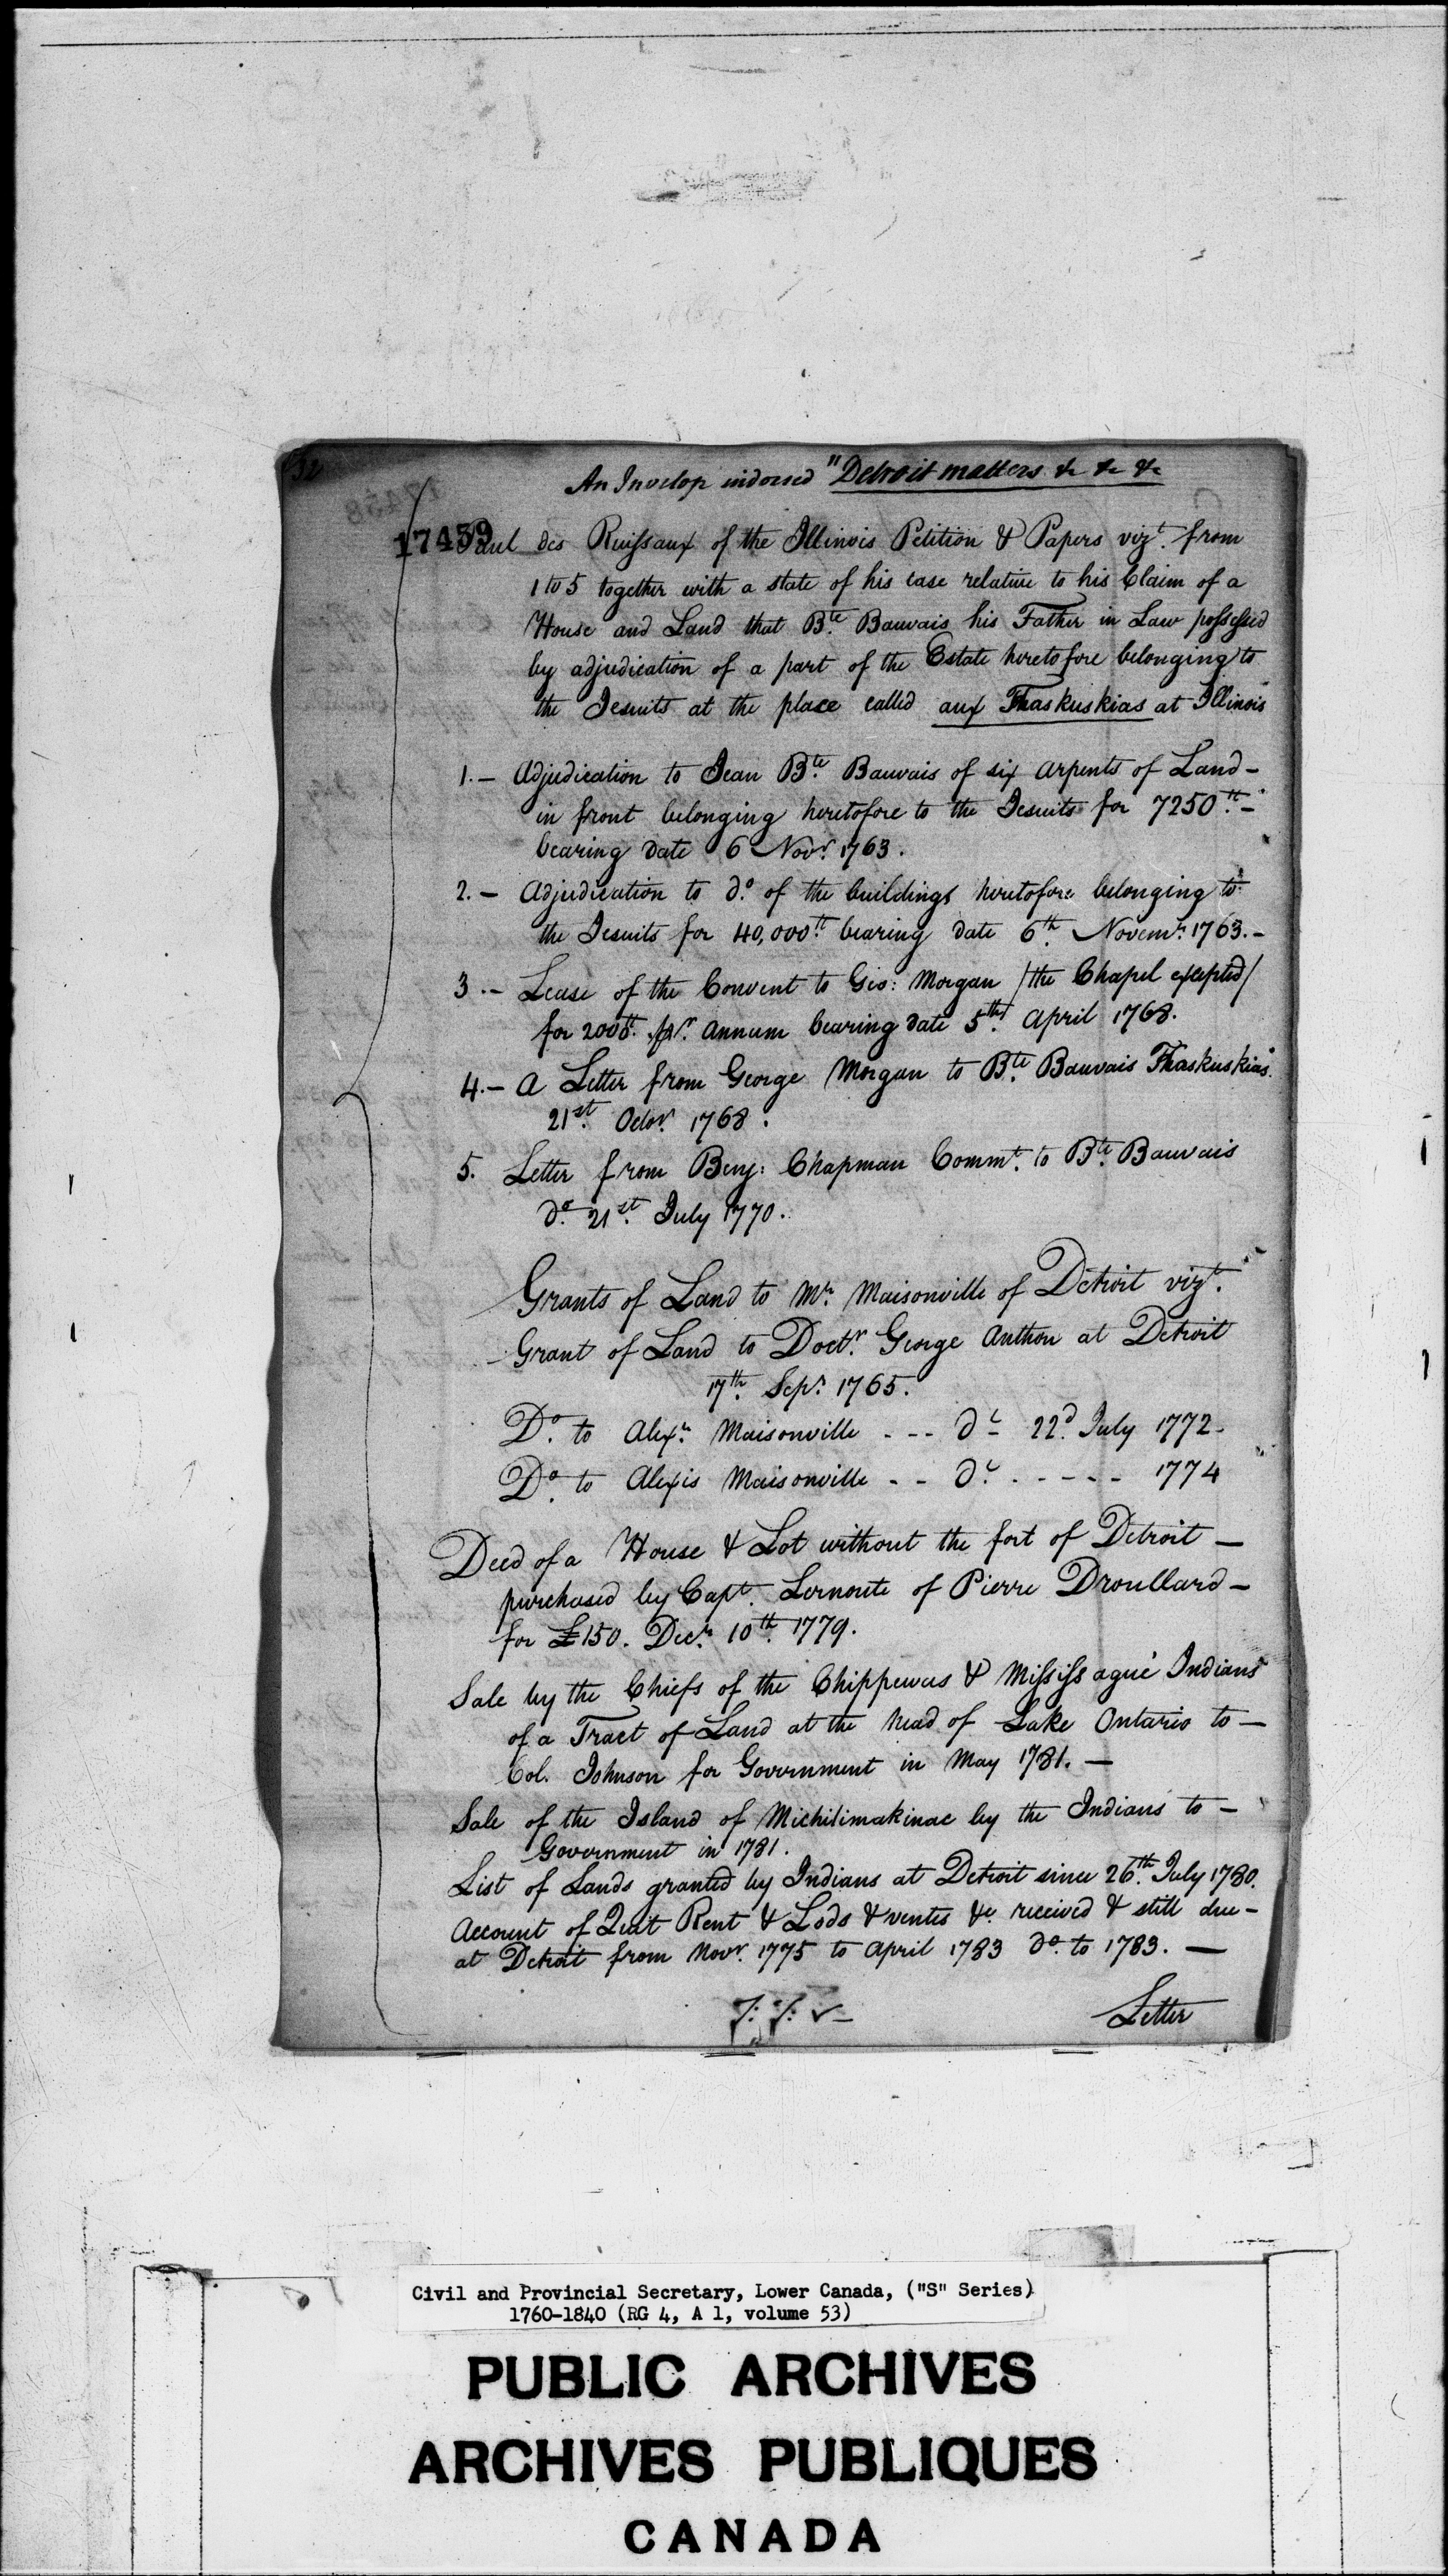 32
An Invelop indorsed "Detroit matters &c &c &c
17439
Paul des Ruissaux of the Illinois Petition & Papers vizt. from
1 to 5 together with a state of his case relative to his Claim of a
House and Land that Bte. Bauvais his Father in Law possessed
by adjudication of a part of the Estate heretofore belonging to
the Jesuits at the place called aux Thaskuskias at Illinois
1. — Adjudication to Jean Bte. Bauvais of six arpents of Land —
in front belonging heretofore to the Jesuits for 7250tt. —
bearing date 6 Novr. 1763.
2. — Adjudication to do. of the buildings heretofore belonging to
the Jesuits for 40,000tt. bearing date 6th. Novemr. 1763. —
3. — Lease of the Convent to Geo: Morgan / the Chapel excepted /
for 2000tt. pr. annum bearing date 5th. April 1768.
4. — A Letter from George Morgan to Bte. Bauvais Thaskuskias.
21st. Octor. 1768.
5. Letter from Benj: Chapman Commt. to Bte. Bauvais
do. 21st. July 1770.
Grants of Land to Mr. Maisonville of Detroit vizt.
Grant of Land to Doctr. George Anthon at Detroit
17th. Sepr. 1765.
Do. to Alexr. Maisonville - - - do. 22d. July 1772.
Do. to Alexis Maisonville - - do. - - - - - 1774
Deed of a House & Lot without the fort of Detroit —
purchased by Capt. Lernoute of Pierre Droullard —
for £150. Decr. 10th. 1779.
Sale by the Chiefs of the Chippewas & Mississagué Indians
of a Tract of Land at the head of Lake Ontario to —
Col. Johnson for Government in May 1781. —
Sale of the Island of Michilimakinac by the Indians to —
Government in 1781.
List of Lands granted by Indians at Detroit since 26th. July 1780.
Account of Quit Rent & Lods & ventes &c. received & still due —
at Detroit from Novr. 1775 to April 1783 do. to 1783. —
Letter
Civil and Provincial Secretary, Lower Canada, ("S" Series)
1760-1840 (RG 4, A 1, volume 53)
PUBLIC ARCHIVES
ARCHIVES PUBLIQUES
CANADA